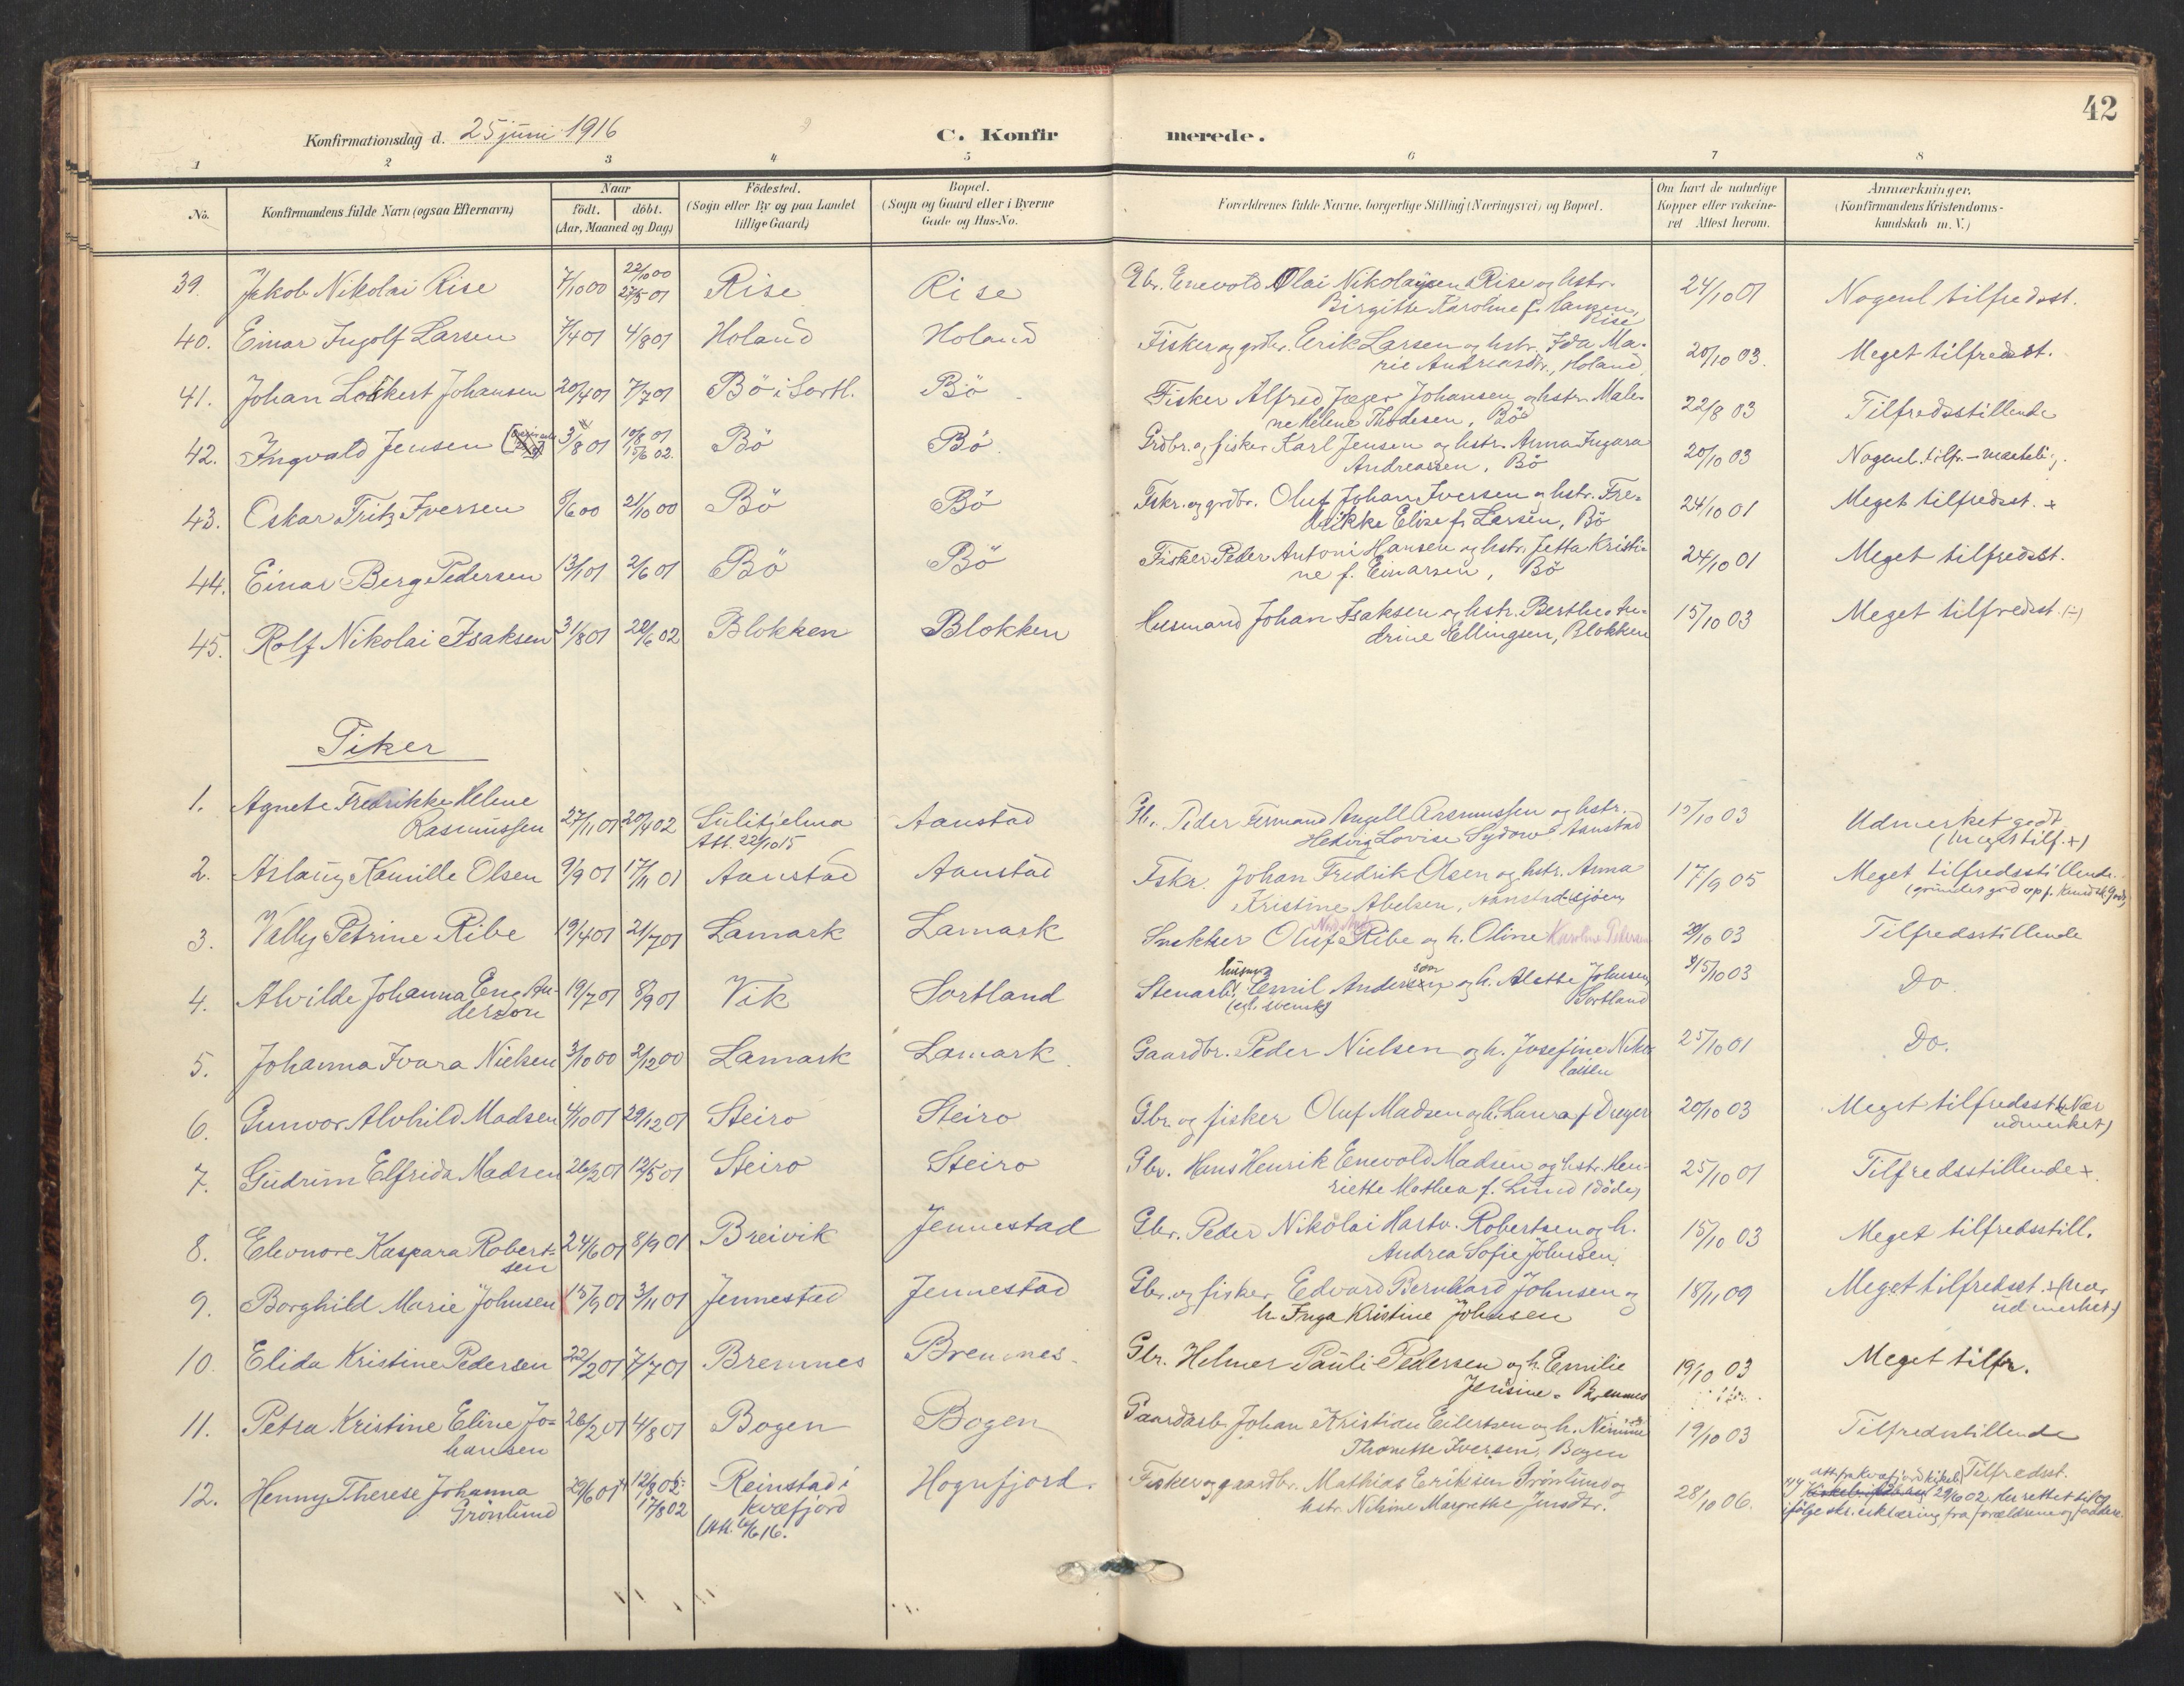 42
Konfirmationsdag d. 25 juni 1916
C. Konfirmerede.
1 2 3 4 5 6 7 8
No. | Konfirmandens fulde Navn (ogsaa Efternavn) | Naar født. døbt. (Aar, Maaned og Dag) | Fødested. (Sogn eller By og paa Landet tillige Gaard) | Bopæl. (Sogn og Gaard eller i Byerne Gade og Hus-No. | Forældrenes fulde Navne, borgerlige Stilling (Næringsvei) og Bopæl. | Om havt de naturlige Kopper eller vakcineret Attest herom. | Anmærkninger. (Konfirmandens Kristendomskundskab m. V.)
39. Jakob Nikolai Rise | 7/10 00 | 22/10 00 27/5 01 | Rise | Rise | Gbr. Enevold Olai Nikolaysen Rise og hstr. Birgitte Karoline f. Hansen, Rise | 24/10 01 | Nogenl tilfredsst.
40. Einar Ingolf Larsen | 7/4 01 | 4/8 01 | Holand | Holand | Fisker og grdbr. Erik Larsen og hstr. Ida Marie Andreasdtr., Holand | 20/10 03. | Meget tilfredsst.
41. Johan Lockert Johansen | 20/4 01 | 7/7 01 | Bö i Sortl. | Bö | Fisker Alfred Jæger Johansen og hstr. Malene Helene Thodesen, Bö | 22/8 03 | Tilfredsstillende
42. Ingvald Jensen | 3/8 01 | 10/8 01 15/6 02. | Bö | Bö. | Grdbr. og fisker Karl Jensen og hstr. Anna Ingara Andreassen, Bö | 20/10 03 | Nogenl. tilfr.
43. Oskar Fritz Iversen | 9/6 00 | 21/10 00 | Bö | Bö | Fskr. og grdbr. Oluf Johan Iversen og hstr. Fredrikke Elise f. Larsen, Bö | 24/10 01 | Meget tilfredsst. +
44. Einar Berg Pedersen | 13/1 01 | 2/6 01 | Bö | Bö | Fisker Peder Antoni Hansen og hstr. Jetta Kristine f. Einarsen, Bö | 24/10 01 | Meget tilfredsst.
45. Rolf Nikolai Isaksen | 31/8 01 | 22/6 02 | Blokken | Blokken | Husmand Johan Isaksen og hstr. Berthe Andrine Ellingsen, Blokken | 15/10 03 | Meget tilfredsst. (-)
Piker
1. Agnete Fredrikke Helene Rasmussen | 27/11 01 | 20/4 02 | Sulitjelma Att. 22/10 15 | Aanstad | Gb. Peder Fermand Angell Rasmussen og hstr. Hedvig Lovise Sydow Aanstad | 15/10 03 | Udmerket godt (meget tilf. +)
2. Aslaug Kamille Olsen | 9/9 01 | 17/11 01 | Aanstad | Aanstad | Fskr. Johan Fredrik Olsen og hstr. Anna Kristine Abelsen, Aanstadsjøen | 17/9 05 | Meget tilfredsstillende.
3. Vally Petrine Ribe | 19/4 01 | 21/7 01 | Lamark | Lamark | Snekker Oluf Ribe og h. Oline Karoline Pedersen | 20/10 03 | Tilfredsstillende
4. Alvilde Johanna Eng Anderson | 19/7 01 | 8/9 01 | Vik | Sortland | Stenarb. husm. Emil Anderson og h. Alette Johnsen, Sortland | 15/10 03 | Do.
5. Johanna Ivara Nielsen | 3/10 00 | 2/12 00 | Lamark | Lamark. | Gaardbr. Peder Nielsen og h. Josefine Nikolaisen | 25/10 01 | Do.
6. Gunvor Alvhild Madsen | 4/10 01 | 29/12 01 | Steiro | Steiro | Gbr. og fisker Oluf Madsen og h. Laura f Dreyer | 20/10 03 | Meget tilfredsst (Nær udmerket)
7. Gudrun Elfrida Madsen | 26/2 01 | 12/5 01 | Steiro | Steiro | Gbr. Hans Henrik Enevold Madsen og hstr. Henriette Mathea f. Lund (døde) | 25/10 01 | Tilfredsstillende +.
8. Eleonore Kaspara Robertsen | 24/6 01 | 8/9 01 | Breivik | Jennestad | Gbr. Peder Nikolai Hartv. Robertsen og h. Andrea Sofie Johnsen. | 15/10 03 | Meget tilfredsstill.
9. Borghild Marie Johnsen | 15/9 01 | 3/11 01 | Jennestad | Jennestad | Gbr. og fisker Edvard Bernhard Johnsen og h. Inga Kristine Johnsen | 18/11 09 | Meget tilfredsst. + (nær udmerket)
10. Elida Kristine Pedersen | 22/2 01 | 7/7 01 | Bremnes | Bremnes. | Gbr. Helmer Pauli Pedersen og h. Emilie Jensine. Bremnes | 19/10 03 | Meget tilfr.
11. Petra Kristine Eline Johansen | 26/2 01 | 4/8 01 | Bogen | Bogen | Gaardarb. Johan Kristian Eilertsen og h. Thonette Iversen, Bogen | 19/10 03 | Tilfredsstillende
12. Henny Therese Johanna Grönlund | 29/6 01 | 12/8 02 17/8 02 | Reinstad i Kvæfjord (Att. 6/6 16. | Hognfjord. | Fisker og gaardbr. Mathias Eriksen Grönlund og hstr. Nikine Margrethe Jensdtr. | 28/10 06. | Tilfredsst. att. fra Kvæfjord 29/6 02, her rettet til 01 ifølge erklæring fra forældrene og faddere.